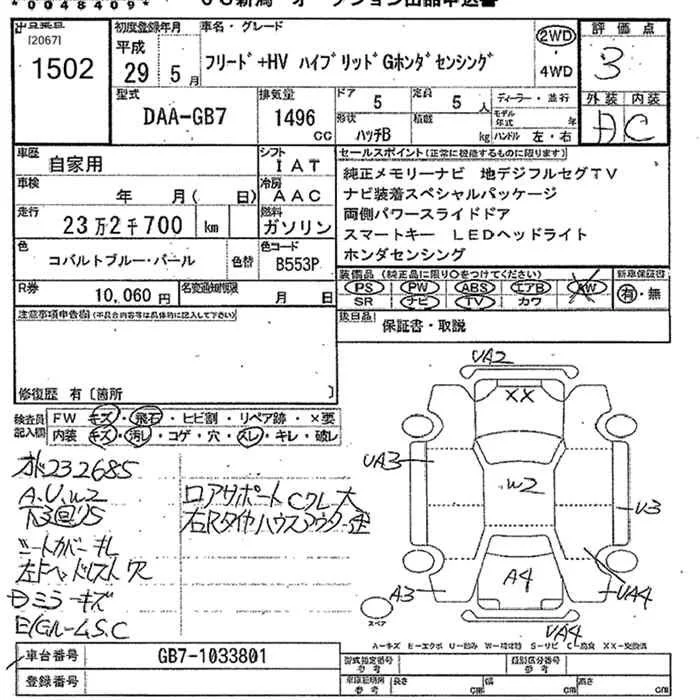 *0048409*
出品番号
[2067]
1502
初度登録年月
平成
29 5月
車名・グレード
フリード+HV ハイブリッドGホンダセンシング
2WD
4WD
評価点
3
外装 内装
A C
型式
DAA-GB7
排気量
1496
cc
ドア
5
定員
5人
形状
ハッチB
積載
kg
ディーラー・並行
モデル年式 年
ハンドル 左・右
車歴
自家用
シフト
IAT
車検
年 月( 日)
冷房
AAC
走行
23万2千700 km
燃料
ガソリン
色
コバルトブルー・パール
色替
色コード
B553P
R券
10,060円
名変通知期限
月 日
セールスポイント(正常に機能するものに限ります)
純正メモリーナビ 地デジフルセグTV
ナビ装着スペシャルパッケージ
両側パワースライドドア
スマートキー LEDヘッドライト
ホンダセンシング
装備品(純正品に限り○をつけてください)
新車保証書
PS PW ABS エアB AW
SR ナビ TV カワ
有・無
後日品
保証書・取説
注意事項申告欄(不具合内容等は具体的に記入して下さい)
修復歴 有〔箇所 〕
検査員記入欄
FW キズ・飛石・ヒビ割・リペア跡・×要
内装 キズ・汚レ・コゲ・穴・スレ・キレ・破レ
232685
A.U.W2
シートカバー
ミラーキズ
ロアサポート
VA2
XX
UA3
W2
U3
A3
A4
UA4
UA4
スペア
A-キズ E-エクボ U-凹み S-サビ
車台番号
GB7-1033801
登録番号
型式指定番号
参考
類別区分番号
参考
長さ cm
幅 cm
高さ cm